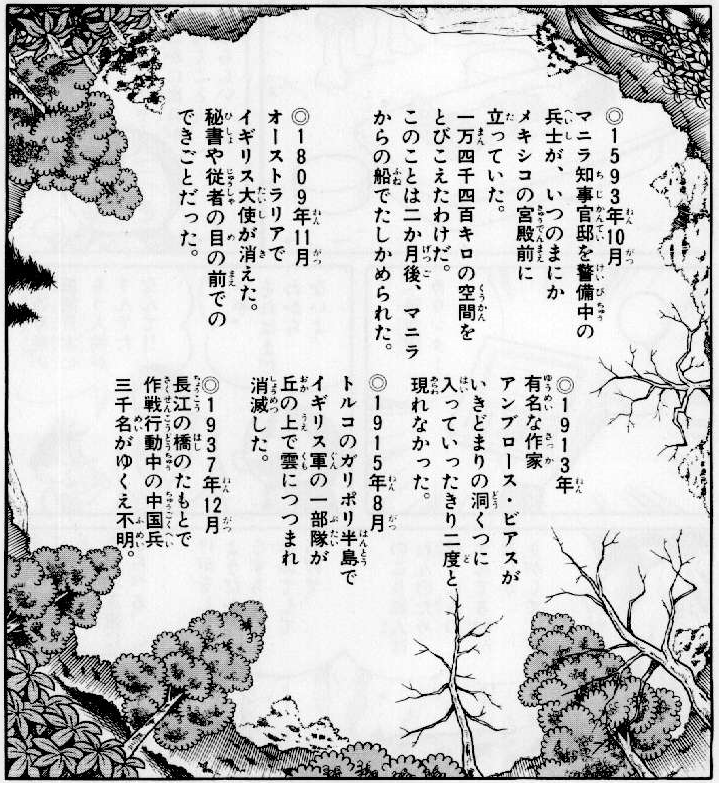 ◎1593年10月
マニラ知事官邸を警備中の
兵士が、いつのまにか
メキシコの宮殿前に
立っていた。
一万四千四百キロの空間を
とびこえたわけだ。
このことは二か月後、マニラ
からの船でたしかめられた。
◎1809年11月
オーストラリアで
イギリス大使が消えた。
秘書や従者の目の前での
できごとだった。
◎1913年
有名な作家
アンブロース・ビアスが
いきどまりの洞くつに
入っていったきり二度と
現れなかった。
◎1915年8月
トルコのガリポリ半島で
イギリス軍の一部隊が
丘の上で雲につつまれ
消滅した。
◎1937年12月
長江の橋のたもとで
作戦行動中の中国兵
三千名がゆくえ不明。